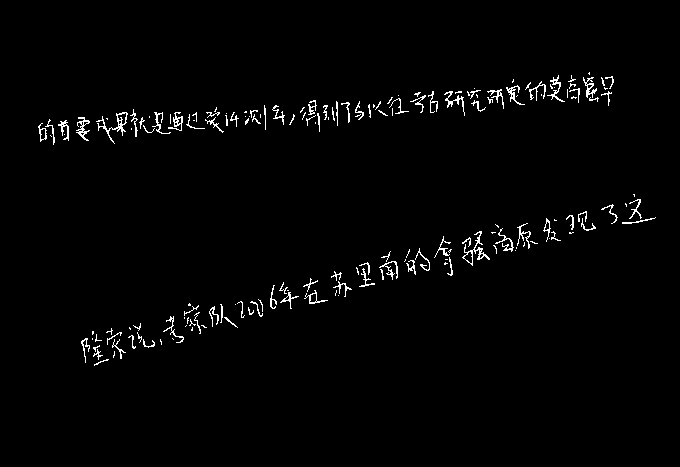 的首要成果就是通过碳14测年,得到了与以往考古研究所定的莫高窟早
隆索说,考察队2006年在苏里南的拿骚高原发现了这